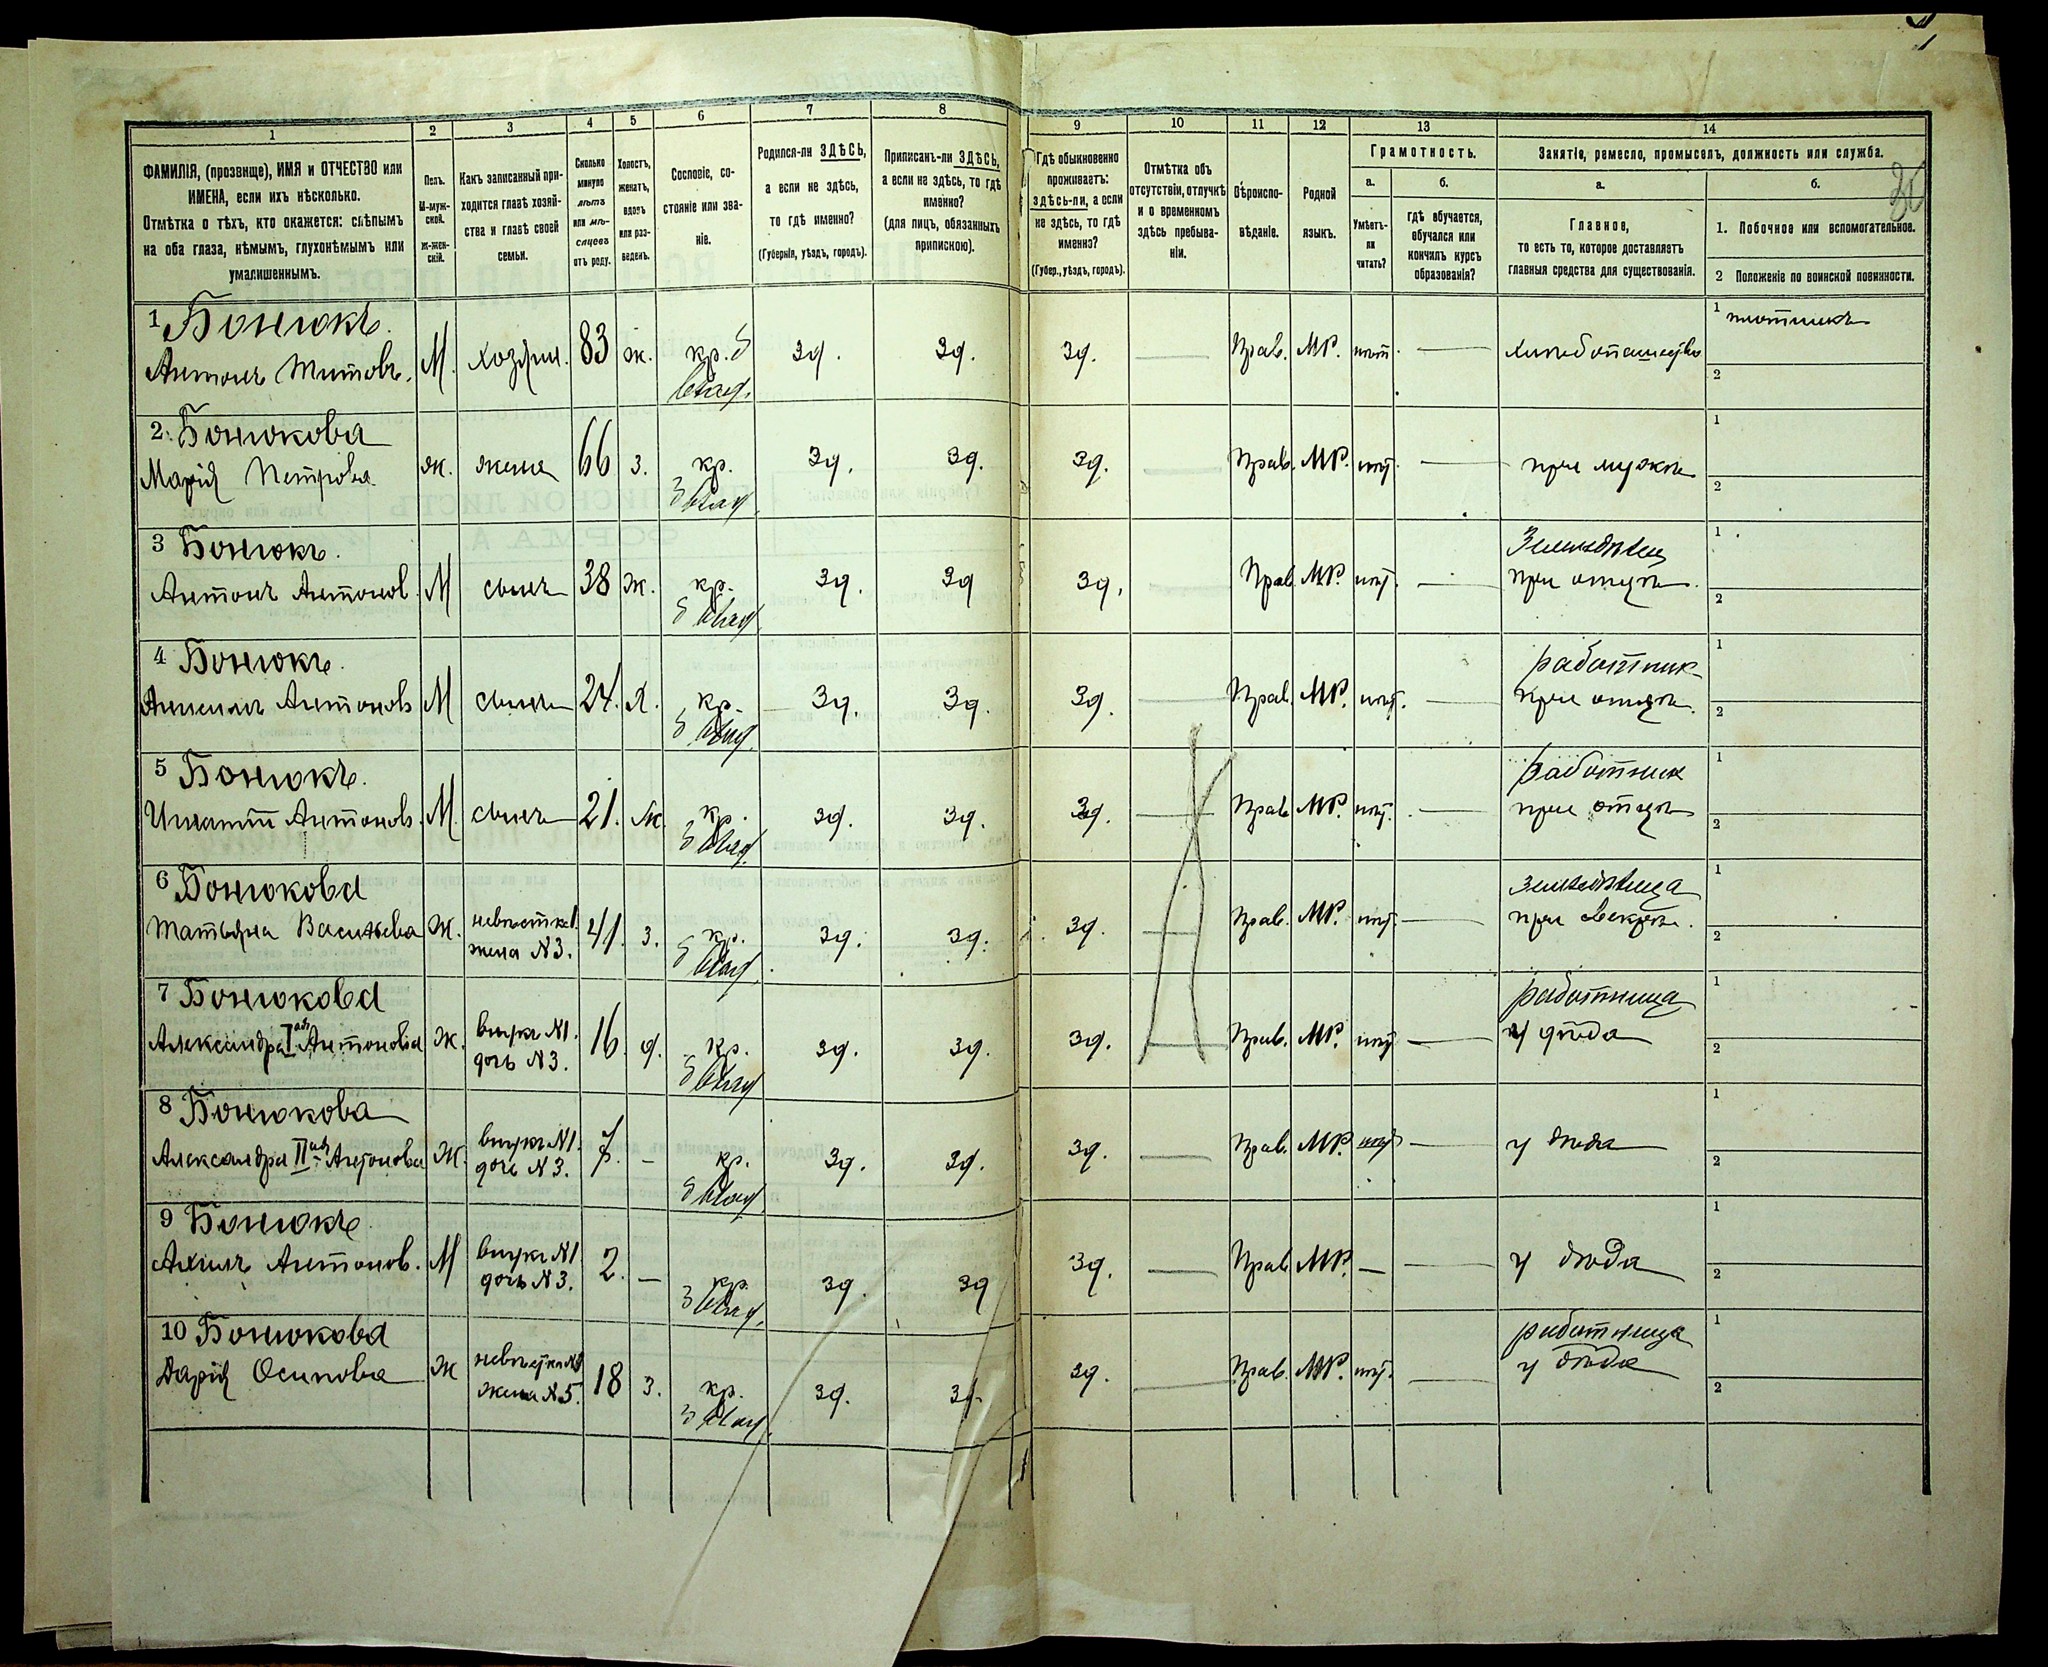 1 2 3 4 5 6 7 8 9 10 11 12 13 14
ФАМИЛІЯ, (прозвище), ИМЯ и ОТЧЕСТВО или
ИМЕНА, если ихъ нѣсколько.
Отмѣтка о тѣхъ, кто окажется: слѣпымъ
на оба глаза, нѣмымъ, глухонѣмымъ или
умалишеннымъ.
Полъ.
М-муж-
ской.
Ж-жен-
скій.
Какъ записанный при-
ходится главѣ хозяй-
ства и главѣ своей
семьи.
Сколько
минуло
лѣтъ
или мѣ-
сяцевъ
отъ роду.
Холостъ,
женатъ,
вдовъ
или раз-
веденъ.
Сословіе, со-
стояніе или зва-
ніе.
Родился-ли ЗДѢСЬ,
а если не здѣсь,
то гдѣ именно?
(Губернія, уѣздъ, городъ).
Приписанъ-ли ЗДѢСЬ,
а если не здѣсь, то гдѣ
именно?
(для лицъ, обязанныхъ
припискою).
Гдѣ обыкновенно
проживаетъ:
здѣсь-ли, а если
не здѣсь, то гдѣ
именно?
(Губер., уѣздъ, городъ).
Отмѣтка объ
отсутствіи, отлучкѣ
и о временномъ
здѣсь пребыва-
ніи.
Вѣроиспо-
вѣданіе.
Родной
языкъ.
Грамотность.
а.
Умѣетъ-
ли
читать?
б.
гдѣ обучается,
обучался или
кончилъ курсъ
образованія?
Занятіе, ремесло, промыселъ, должность или служба.
а.
Главное,
то есть то, которое доставляетъ
главныя средства для существованія.
б.
1. Побочное или вспомогательное.
2 Положеніе по воинской повинности.
1 Бонюкъ.
Антонъ Титовъ. М. хозяин. 83 ж. кр. зд. зд. зд. Прав. МР. нѣт.
1 плотникъ
2
2. Бонюкова
Марія Петрова ж. жена 66 з. кр. зд. зд. зд. Прав. МР. нѣт. при мужѣ
1
2
3 Бонюкъ.
Антонъ Антонов. М сынъ 38 ж. кр. зд. зд зд. Прав. МР. нѣт.
при отцѣ.
1
2
4 Бонюкъ.
Антонов М сынъ 24. х. кр. зд. зд. зд. Прав. МР. нѣт.
работник
при отцѣ.
1
2
5 Бонюкъ.
Игнатій Антонов. М. сынъ 21. ж. кр. зд. зд. зд. Прав. МР. нѣт.
работник
при отцѣ
1
2
6 Бонюкова
Татьяна Васильева Ж. невѣстка 1 жена N3. 41. з. кр. зд. зд. зд. Прав. МР. нѣт.
1
2
7 Бонюкова
Александра I ая Антонова Ж. внукъ N1. дочь N3. 16. д. кр. зд. зд. зд. Прав. МР. нѣт
работница
у дѣда
1
2
8 Бонюкова
Александра II ая Антонова Ж. внукъ N1. дочь N3. 7. – кр. зд. зд. зд. Прав. МР. нѣт у дѣда
1
2
9 Бонюкъ
Антонов. М внукъ N1 дочь N3. 2. – кр. зд. зд зд. Прав МР. – у дѣда
1
2
10 Бонюкова
Дарія Осипова Ж невѣстка N1 жена N5. 18 з. кр. зд. зд. зд. Прав. МР. нѣт.
работница
у дѣда
1
2